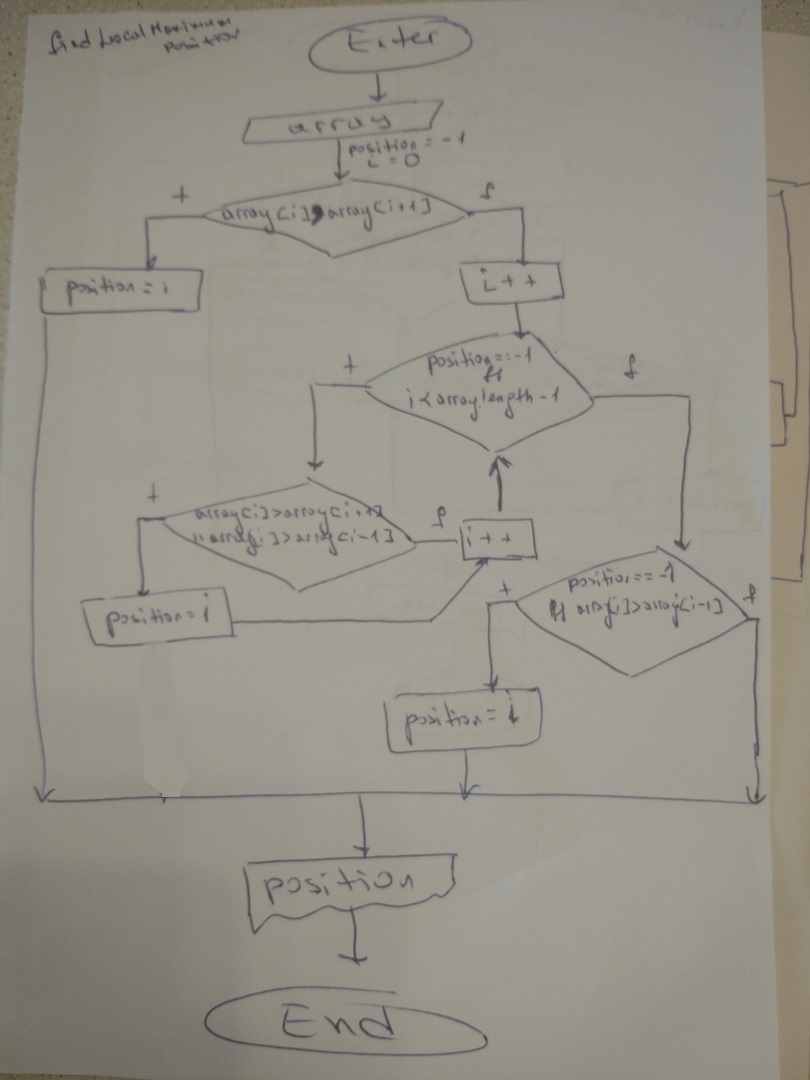 find Local Maximum
position
Enter
array
position = -1
i = 0
t
array[i]>array[i+1]
f
position = i
i++
t
position == -1
&&
i < array.length - 1
f
t
array[i]>array[i+1]
array[i]>array[i-1]
f
i++
position = i
t
position == -1
&& array[i]>array[i-1]
f
position = i
position
End